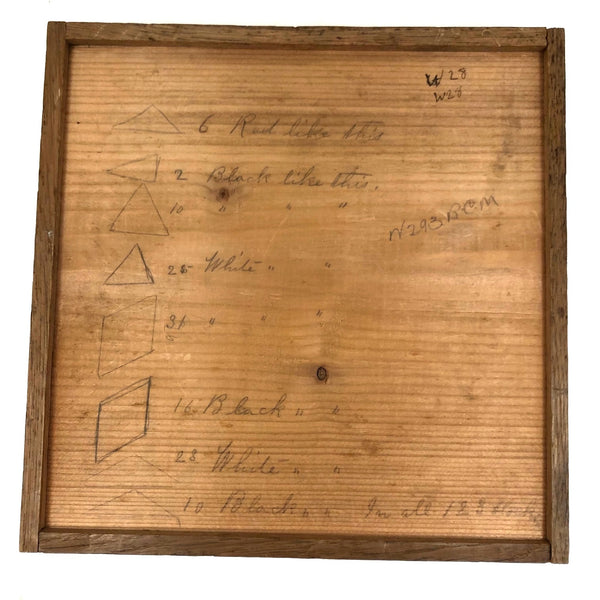 W28
W28
6 Red like this
2 Black like this.
10 " " "
25 White " "
31 " " "
16 Black " "
28 White " "
10 Black " " In all 128 blocks